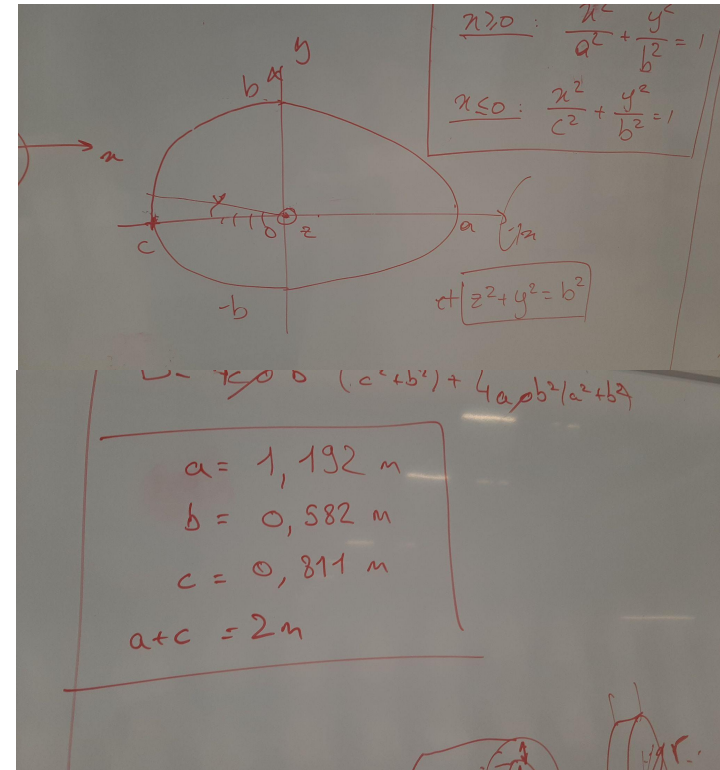 x≥0 : x²/a² + y²/b² = 1
x≤0 : x²/c² + y²/b² = 1
y
b
x
γ
0
z
a
c
-b
et z²+y² = b²
(c²+b²) + 4aρb²(a²+b²)
a = 1,192 m
b = 0,582 m
c = 0,811 m
a+c = 2m